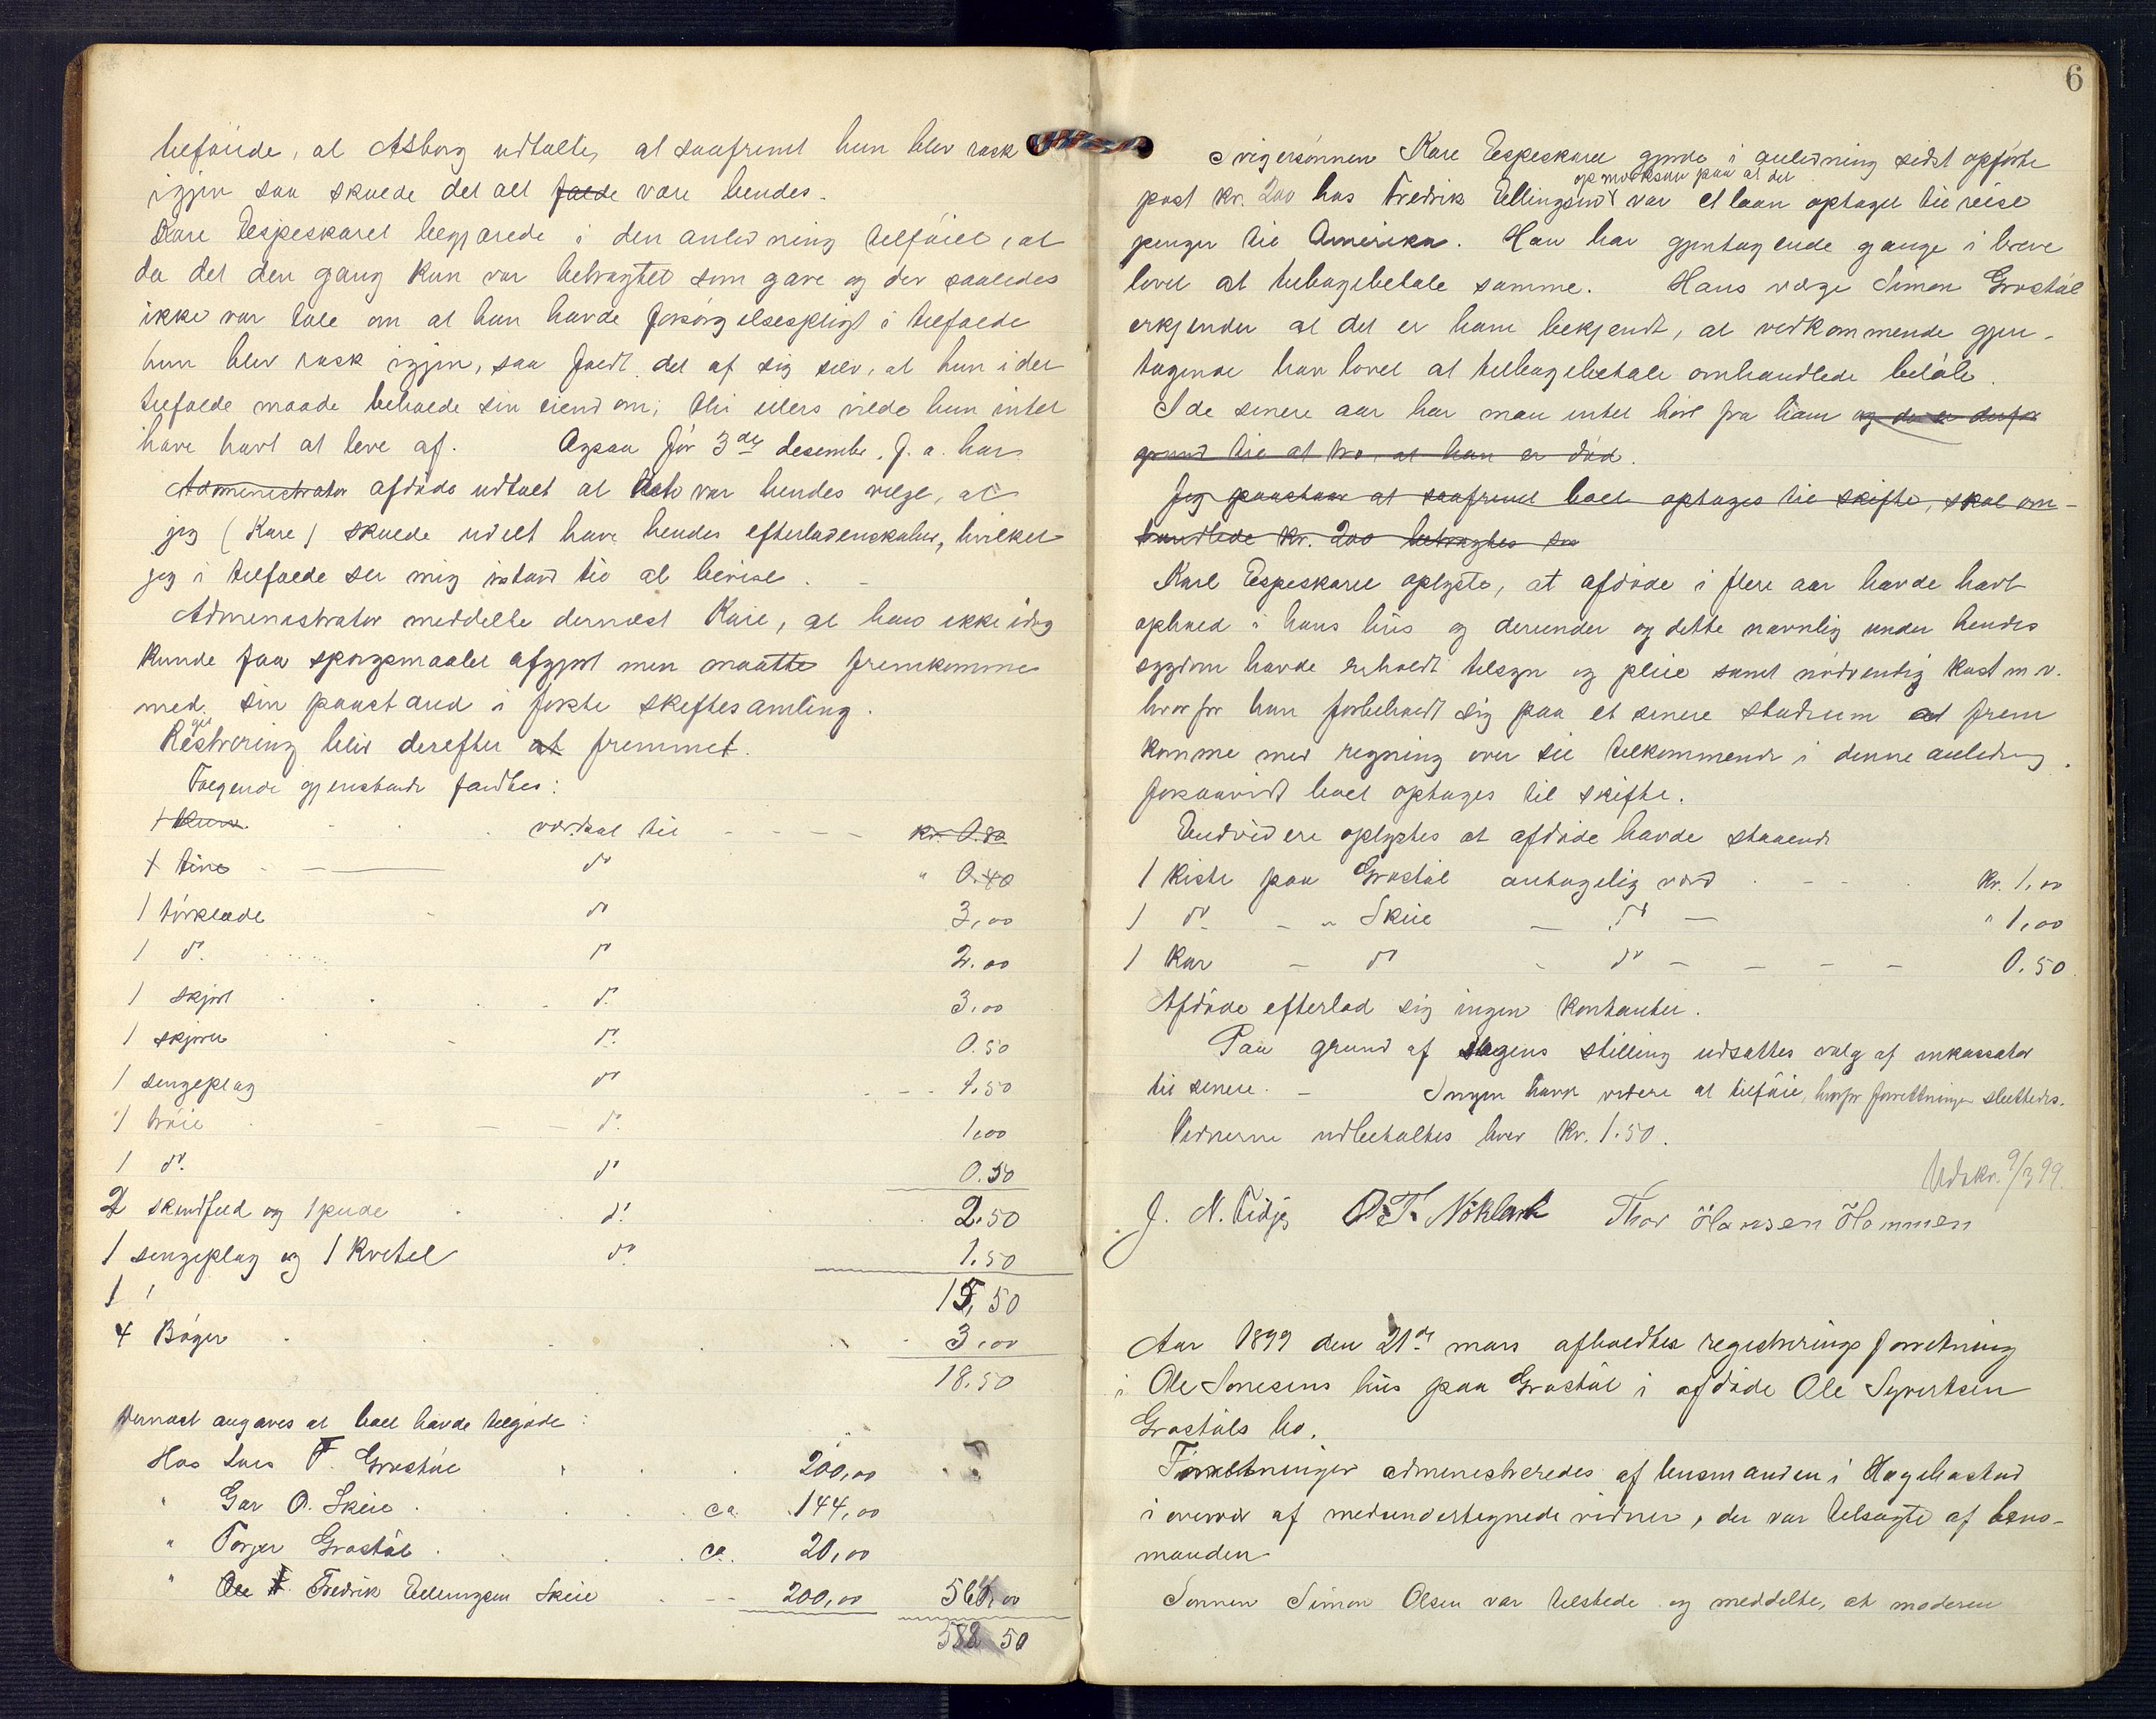 tilføide, at Asborg udtalte, at saafremt hun blev rask
igjen saa skulde det alt falde være hendes.
Kare Espeskaret begjærede i den anledning tilføiet, at
da det den gang kun var betragtet som gave og der saaledes
ikke var tale om at han havde forsørgelsespligt i tilfælde
hun blev rask igjen, saa faldt det af sig selv, at hun i det
tilfælde maade beholde sin eiendom; thi ellers vilde hun intet
have havt at leve af. Ogsaa før 3de desembr. f. a. har
Administrator afdøde udtalt at det var hendes vilge, at
jeg (Kare) skulde udelt have hendes efterladenskaber, hvilket
jeg i tilfælde ser mig istand til at bevise. -
Administrator meddelte dernæst Kare, at han ikke idag
kunde faa spørgsmaalet afgjort men maatte fremkomme
med sin paastand i første skiftesamling.
Registrering blev derefter at fremmet.
Følgende gjenstande fandtes:
1 værdsat til kr. 0.80
1 tine do " 0.40
1 tørklæde do 3,00
1 do. do 2.00
1 skjørt do. 3,00
1 skjorte do. 0.50
1 sengeplag do 1.50
1 trøie do. 1,00
1 do. do 0.50
2 skindfeld og 1 pude do. 2.50
1 sengeplag og 1 kvitel do. 1.50
1 15,50
4 Bøger 3,00
18.50
Dernæst angaves at boet havde tilgode:
Hos Lars F. Grøstøl 200,00
" Gar O. Skeie ca. 144,00
" Torjer Grøstøl ca. 20,00
" Ole Fredrik Ellingsen Skeie 200,00 564,00
582 50
6
Svigersønnen Kare Espeskaret gjorde i anledning sidst opførte
opmærksom paa at det
post kr. 200 hos Fredrik Ellingsen var et laan optaget til reise
penger til Amerika. Han har gjentagende gange i breve
lovet at tilbagebetale samme. Hans værge Simon Grøstøl
erkjender at det er ham bekjendt, at vedkommende gjen-
tagende har lovet at tilbagebetale omhandlede beløb.
I de senere aar har man intet hørt fra ham og der er derfor
grund til at tro, at han er død.
Jeg paastaar at saafremt boet optages til skifte, skal om-
handlede kr. 200 betragtes som
Karl Espeskaret oplyste, at afdøde i flere aar havde havt
ophold i hans hus og derunder og dette navnlig under hendes
sygdom havde erholdt tilsyn og pleie samt nødvendig kost m v.
hvorfor han forbeholdt sig paa et senere stadium at frem
komme med regning over sit tilkommende i denne anledning,
forsaavidt boet optages til skifte.
Endvidere oplystes at afdøde havde staaende
1 kiste paa Grøstøl antagelig værd kr. 1,00
1 do. - " Skeie - do - " 1,00
1 Kar - do - do - - - - 0.50
Afdøde efterlod sig ingen kontanter.
Paa grund af sagens stilling udsattes valg af inkassator
til senere. - Ingen havde videre at tilføie, hvorfor forretningen sluttedes.
Vidnerne udbetaltes hver kr. 1.50.
Udskr. 9/3 99.
J. N. Tidje O. T. Nøkland Thor Hansen Hommen
Aar 1899 den 21de mars afholdtes registrerings forretning
i Ole Simesens hus paa Grøstøl i afdøde Ole Syvertsen
Grøstøls bo.
Forretningen administreredes af lensmanden i Hægebostad
i overvær af medundertegnede vidner, der var tilsagte af lens-
manden
Sønnen Simon Olsen var tilstede og meddelte, at moderen